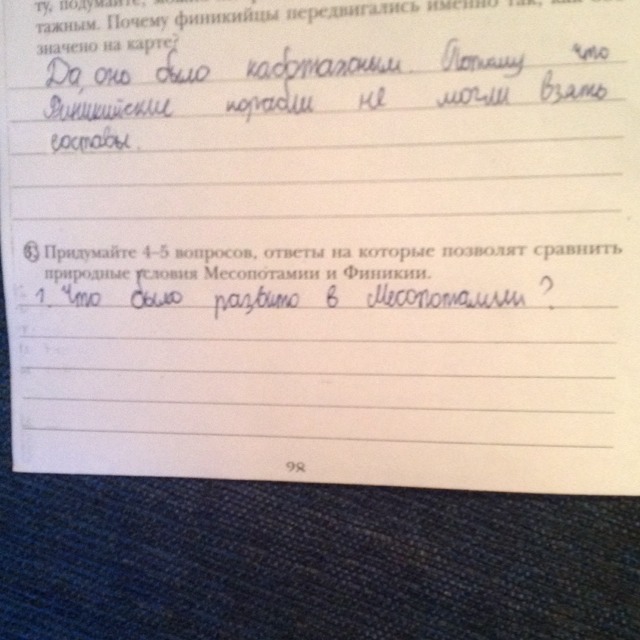 ту, подумайте, можно
тажным. Почему финикийцы передвигались именно так, как
значено на карте?
Да, оно было каботажным. Потому что
Финикийские корабли не могли взять
составы.
6 Придумайте 4–5 вопросов, ответы на которые позволят сравнить
природные условия Месопотамии и Финикии.
1. Что было развито в Месопотамии?
98